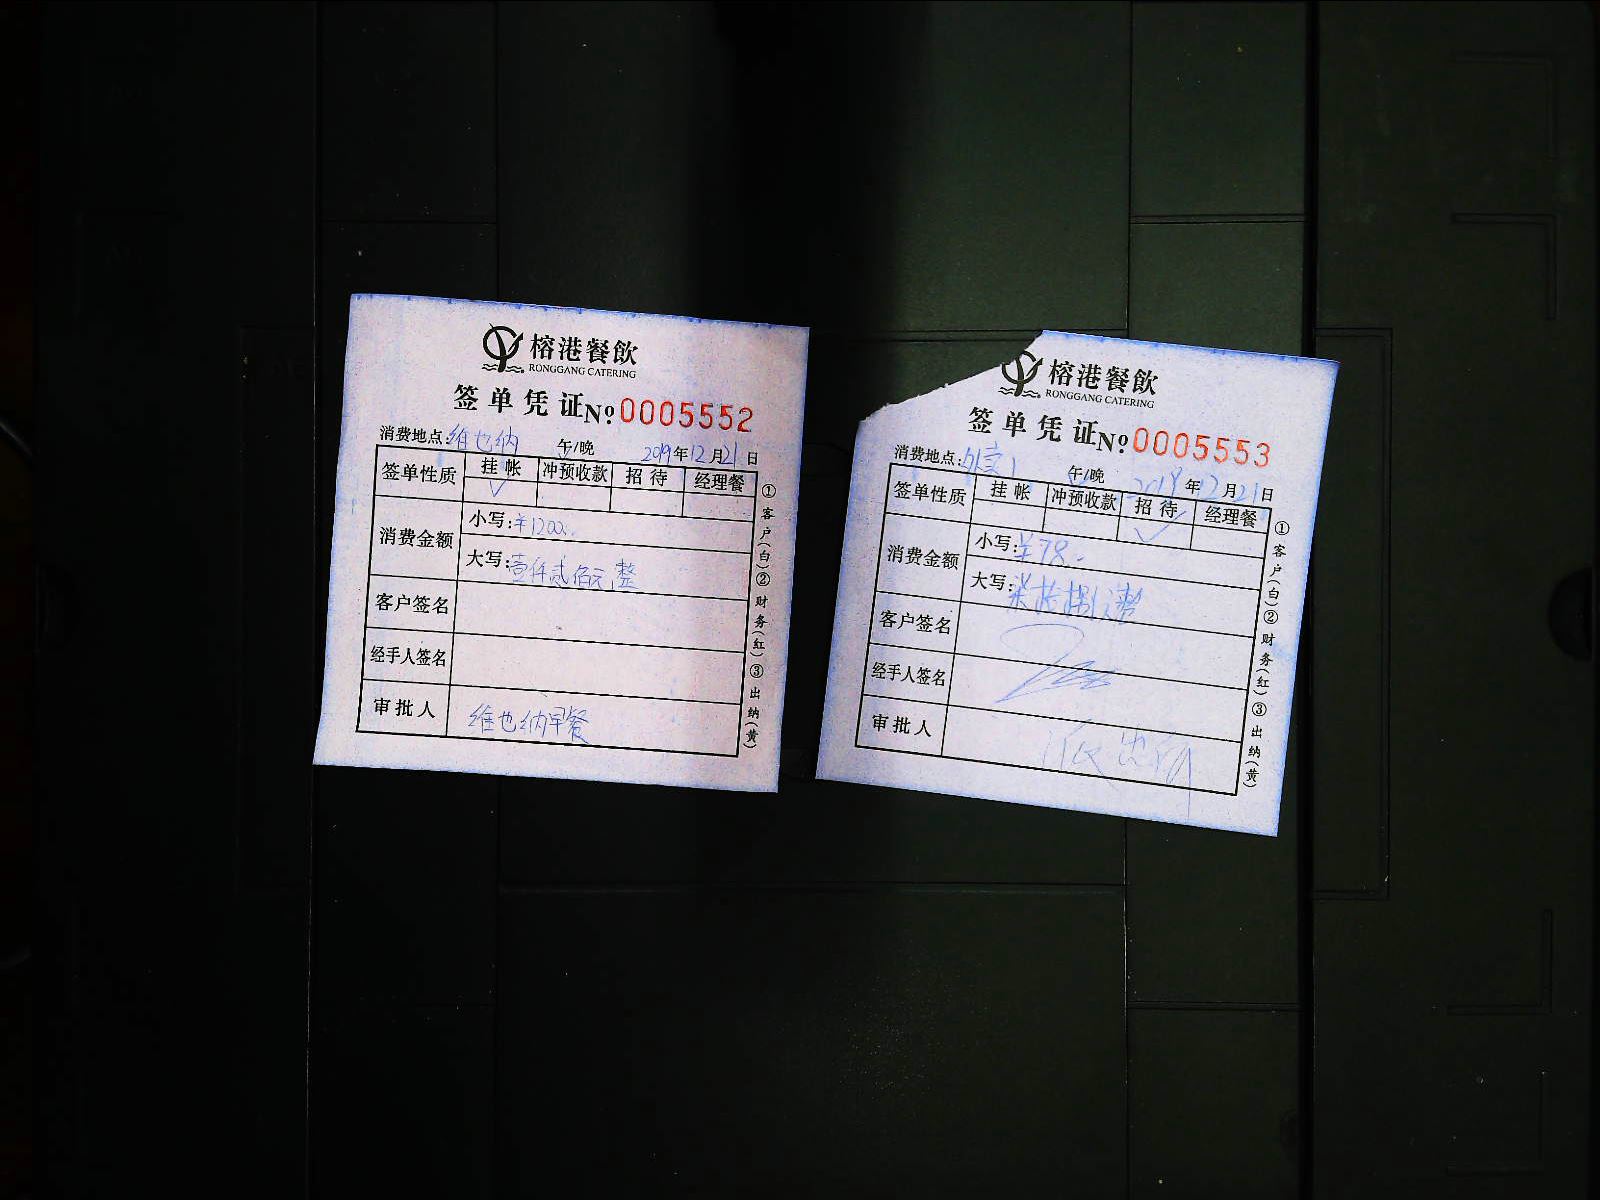 榕港餐飲
RONGGANG CATERING
签单凭证№0005552
消费地点:维也纳 午/晚 2019年12月21日
签单性质 挂帐 冲预收款 招待 经理餐
✓
消费金额 小写:¥1200.
大写:壹仟贰佰元整
客户签名
经手人签名
审批人 维也纳早餐
①客户(白)②财务(红)③出纳(黄)
榕港餐飲
RONGGANG CATERING
签单凭证№0005553
消费地点: 午/晚 2019年12月21日
签单性质 挂帐 冲预收款 招待 经理餐
✓
消费金额 小写:¥78.
大写:柒拾捌元整
客户签名
经手人签名
审批人
①客户(白)②财务(红)③出纳(黄)